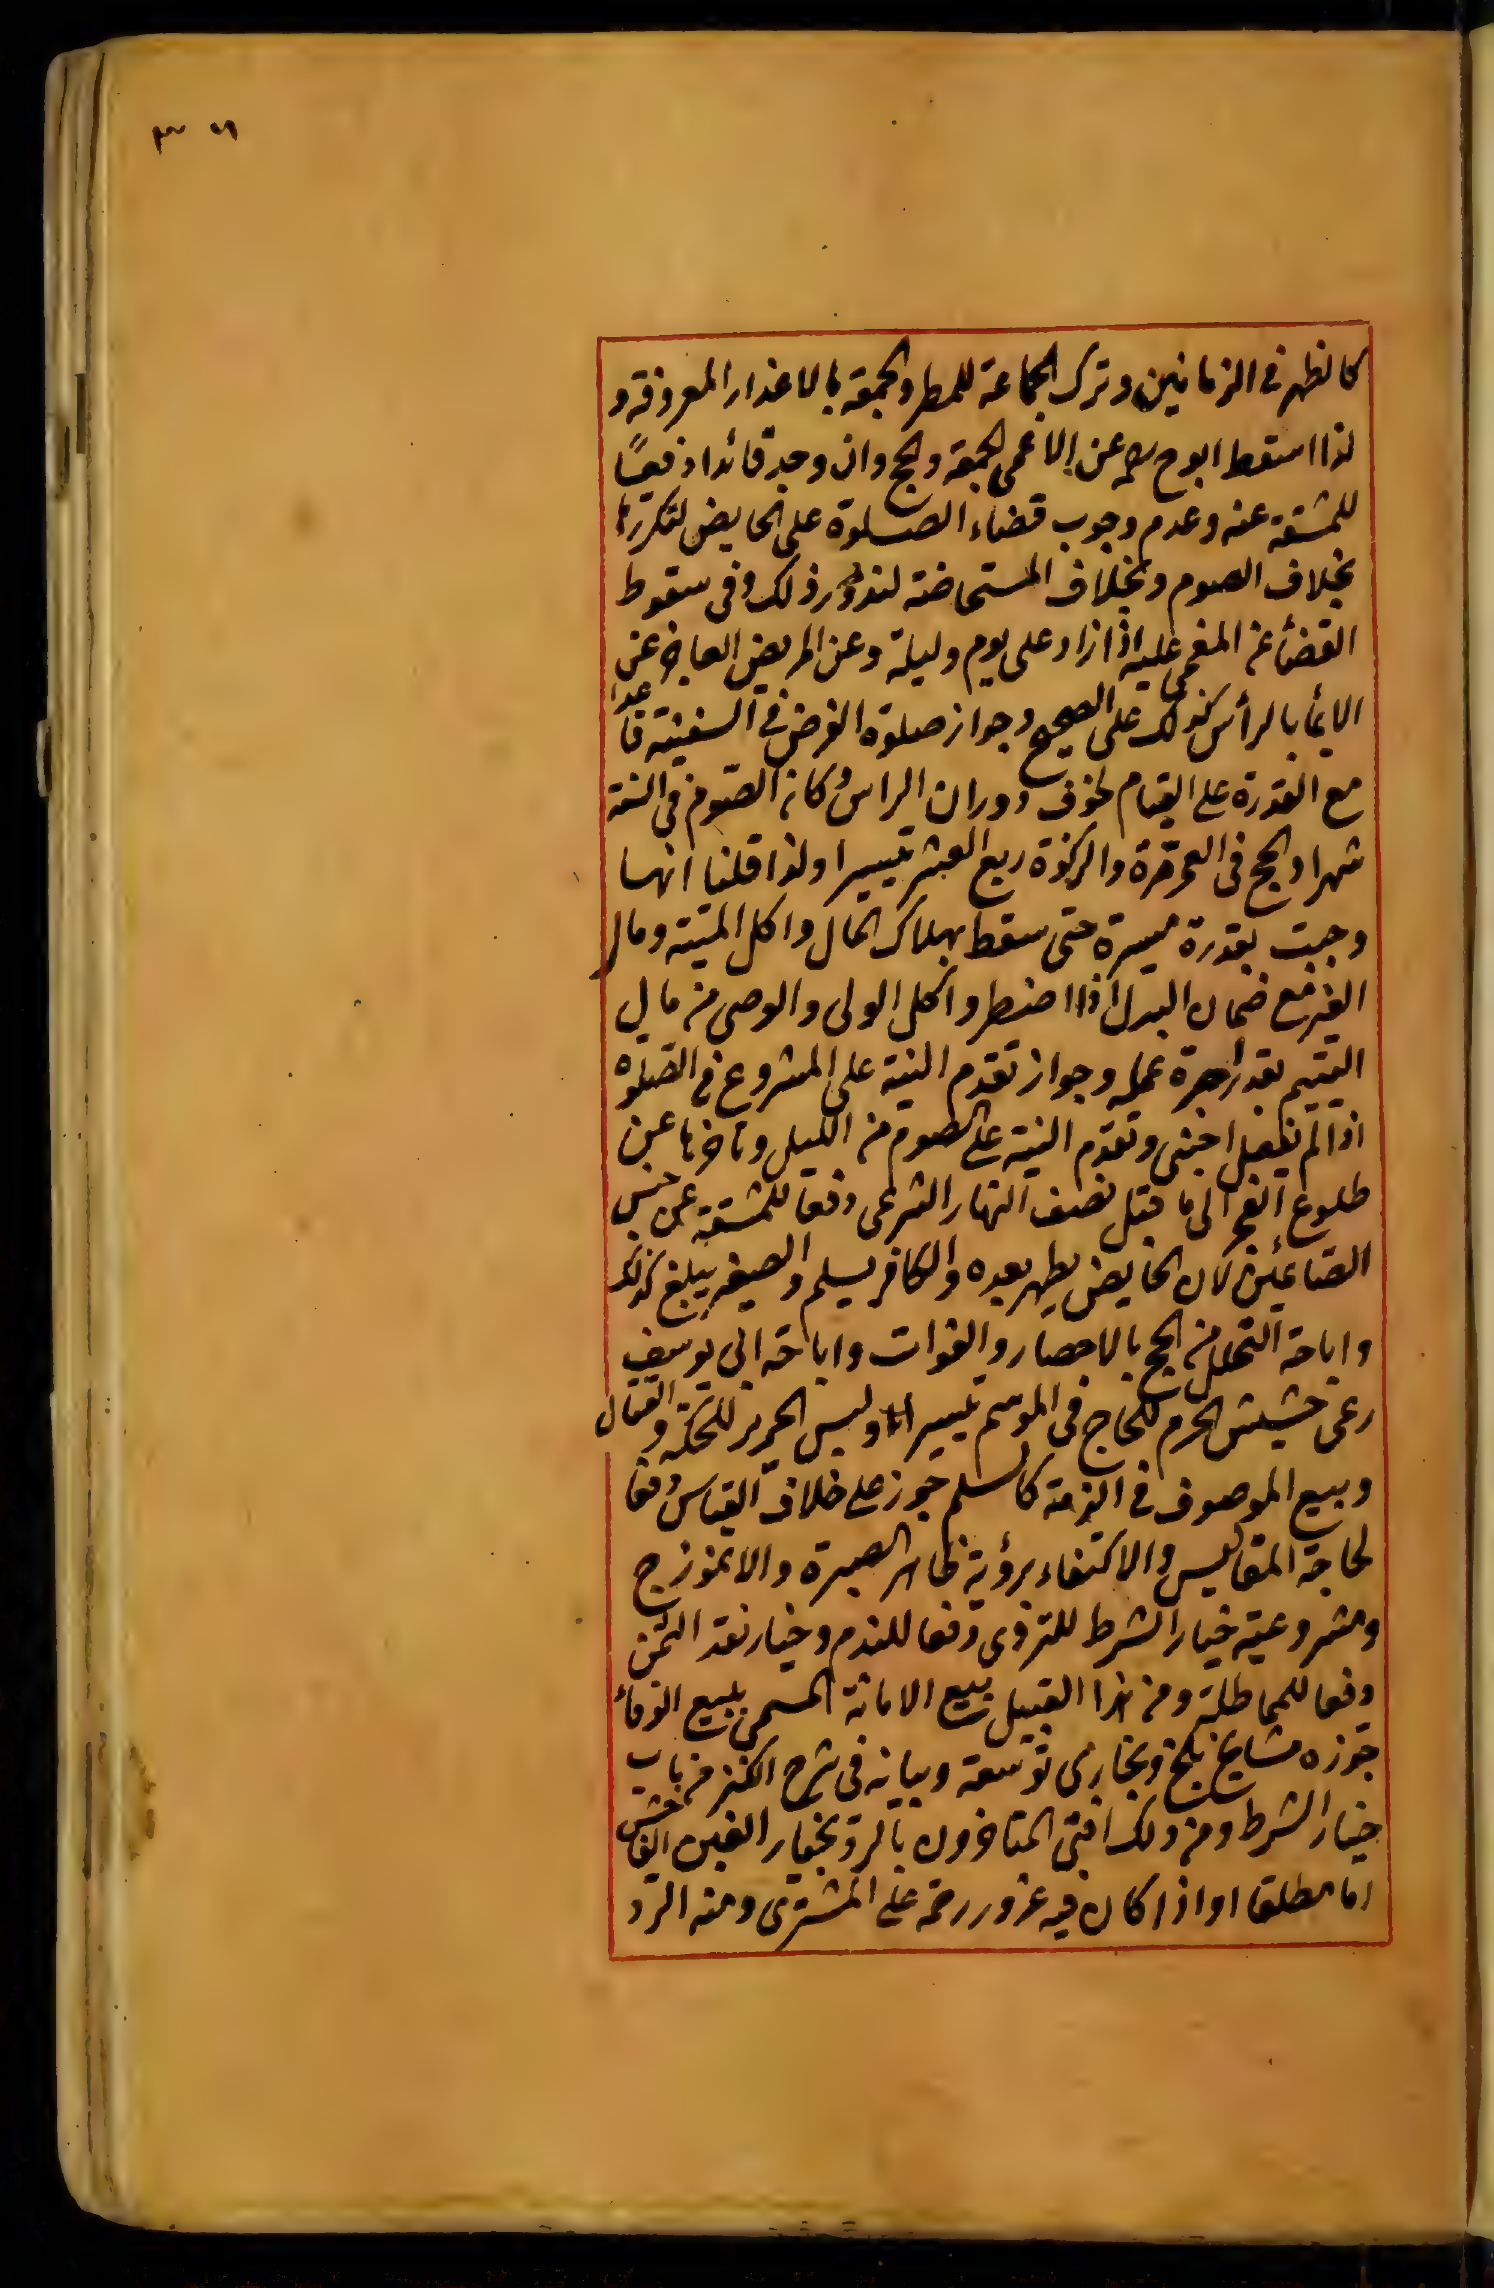 كالظهر فى الزمانين وترك الجماعة للمطر والجمعة بالاعذار المعروفة و
لذا اسقط ابو ح رحمه عن الاعمى الجمعة والحج وان وجد قائدا دفعًا
للمشقة عنه وعدم وجوب قضاء الصلوة على الحايض لتكررها
بخلاف الصوم وبخلاف المستحاضة لندور ذلك وفى سقوط
القضأ عن المغمى عليه اذا زاد على يوم وليلة وعن المريض العاجز عن
الايمأ بالرأس كذلك على الصحيح وجواز صلوة الفرض فى السفينة قاعدا
مع القدرة على القيام لخوف دوران الراس وكان الصوم فى السنة
شهرا والحج فى العمر مرة والزكوة ربع العشر تيسيرا ولذا قلنا انها
وجبت بقدرة ميسرة حتى سقط بهلاك المال واكل الميتة ومال
الغير مع ضمان البدل اذا اضطر واكل الولى والوصى من مال
اليتيم بقدر اجرة عمله وجواز تقدم النية على المشروع فى الصلوة
اذا لم يفصل اجنبى وتقدم النية على الصوم من الليل وتاخرها عن
طلوع الفجر الى ما قبل نصف النهار الشرعى دفعا للمشقة عن جنس
الصائمين لان الحايض يطهر بعده والكافر يسلم والصغير يبلغ كذلك
واباحة التحلل من الحج بالاحصار والفوات واباحة ابى يوسف
رعى حشيش الحرم للحاج فى الموسم تيسيرا ولبس الحرير للحكة والقتال
وبيع الموصوف فى الذمة كالسلم جوز على خلاف القياس دفعا
لحاجة المفاليس والاكتفاء برؤية ظاهر الصبرة والانموزج
ومشروعية خيار الشرط للتروى دفعا للندم وخيار نقد الثمن
دفعا للمماطلة ومن هذا القبيل بيع الامانة المسمى ببيع الوفأ
جوزه مشايخ بلخ وبخارى توسعة وبيانه فى شرح الكنز من باب
خيار الشرط ومن ذلك افتى المتاخرون بالرد بخيار الغبن الفاحش
اما مطلقا او اذا كان فيه غرور رحمة على المشترى ومنه الرد